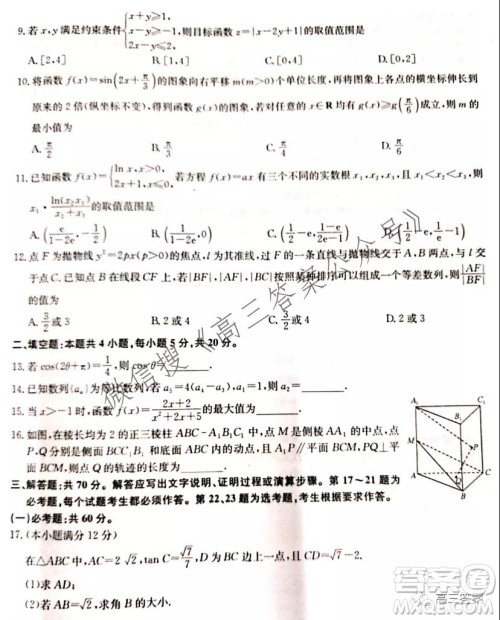 9. 若 x, y 满足约束条件{x+y≥1, x-y≤1, 2x-y≤2, 则目标函数 z=|x-2y+1|的取值范围是
A. [2,4] B. [0,4] C. [2,4) D. [0,2]
10. 将函数 f(x)=sin(2x+π/3)的图象向右平移 m(m>0)个单位长度, 再将图象上各点的横坐标伸长到
原来的 2 倍(纵坐标不变), 得到函数 g(x)的图象, 若对任意的 x∈R 均有 g(x)≥g(π/6)成立, 则 m 的
最小值为
A. π/2 B. π/3 C. π/4 D. π/6
11. 已知函数 f(x)={ln x, x>0, 若方程 f(x)=ax 有三个不同的实数根 x₁, x₂, x₃, 且 x₁<x₂<x₃, 则
x₁·ln(x₂x₃)/(x₂+x₃)的取值范围是
12. 点 F 为抛物线 y²=2px 的焦点, l 为其准线, 过 F 的一条直线与抛物线交于 A, B 两点, 与 l 交
于点 C. 已知点 B 在线段 CF 上, 若|BF|, |AF|, |BC|按照某种排序可以组成一个等差数列, 则|AF|/|BF|
的值为
A. 3/2 或 4 B. 2 或 4 C. 3/2 或 2 D. 2 或 3
二、填空题:本题共 4 小题, 每小题 5 分, 共 20 分。
13. 若 cos(2θ+π)=1/4, 则 cosθ=
14. 已知数列{aₙ}为等比数列, 若 a₅=4(a₄-1), 且 a₁=1, 则 a₂=
15. 当 x>-1 时, 函数 f(x)=(2x+2)/(x²+2x+5)的最大值为
16. 如图, 在棱长均为 2 的正三棱柱 ABC-A₁B₁C₁ 中, 点 M 是侧棱 AA₁ 的中点,
点 P、Q 分别是侧面 BCC₁B₁、底面 ABC 内的动点, 且 A₁P∥平面 BCM, PQ⊥平面
BCM, 则点 Q 的轨迹的长度为
三、解答题:共 70 分。解答应写出文字说明、证明过程或演算步骤。第 17~21 题为
必考题, 每个试题考生都必须作答。第 22、23 题为选考题, 考生根据要求作答。
(一)必考题:共 60 分。
17. (本小题满分 12 分)
(1)求 AD;
(2)若 AB=√2, 求角 B 的大小.
A₁
C₁
B₁
M
P
A
C
B
微信搜《高三答案公众号》
答案圈
高三答案